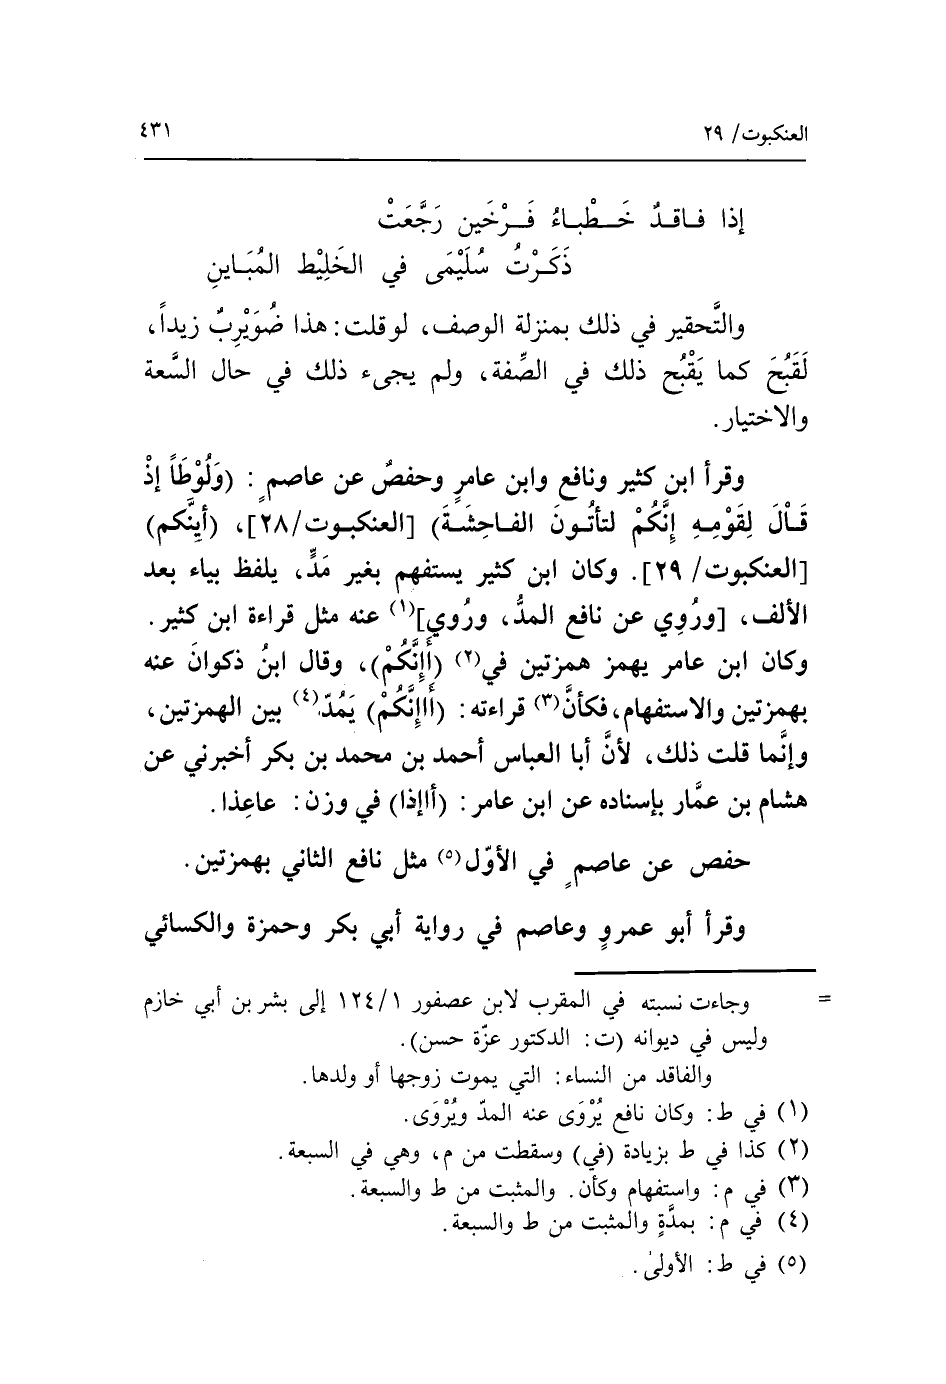 العنكبوت/ ٢٩
٤٣١
إذا فـاقـدٌ خَـطْبـاءُ فَـرْخَين رَجَّعَتْ
ذَكَـرْتُ سُلَيْمَى في الخَلِيْط المُبَـاينِ
والتَّحقير في ذلك بمنزلة الوصف، لو قلت: هذا ضُوَيْرِبٌ زيداً،
لَقَبُحَ كما يَقْبُح ذلك في الصِّفة، ولم يجىء ذلك في حال السَّعة
والاختيار.
وقرأ ابن كثير ونافع وابن عامرٍ وحفصٌ عن عاصمٍ: (وَلُوْطَاً إذْ
قَـالَ لِقَوْمِـهِ إنَّكُمْ لتأتُـونَ الفـاحِشَـةَ) [العنكبـوت/٢٨]، (أينَّكم)
[العنكبوت/ ٢٩]. وكان ابن كثير يستفهم بغير مَدٍّ، يلفظ بياء بعد
الألف، [ورُوِي عن نافع المدُّ، ورُوي](١) عنه مثل قراءة ابن كثير.
وكان ابن عامر يهمز همزتين في(٢) (أَإنَّكُمْ)، وقال ابنُ ذكوانَ عنه
بهمزتين والاستفهام، فكأنَّ(٣) قراءته: (أَاإنَّكُمْ) يَمُدّ(٤) بين الهمزتين،
وإنَّما قلت ذلك، لأنَّ أبا العباس أحمد بن محمد بن بكر أخبرني عن
هشام بن عمَّار بإسناده عن ابن عامر: (أاإذا) في وزن: عاعِذا.
حفص عن عاصمٍ في الأوّل(٥) مثل نافع الثاني بهمزتين.
وقرأ أبو عمروٍ وعاصم في رواية أبي بكر وحمزة والكسائي
= وجاءت نسبته في المقرب لابن عصفور ١٢٤/١ إلى بشر بن أبي خازم
وليس في ديوانه (ت: الدكتور عزّة حسن).
والفاقد من النساء: التي يموت زوجها أو ولدها.
(١) في ط: وكان نافع يُرْوَى عنه المدّ ويُرْوَى.
(٢) كذا في ط بزيادة (في) وسقطت من م، وهي في السبعة.
(٣) في م: واستفهام وكأن. والمثبت من ط والسبعة.
(٤) في م: بمدَّةٍ والمثبت من ط والسبعة.
(٥) في ط: الأولىٰ.